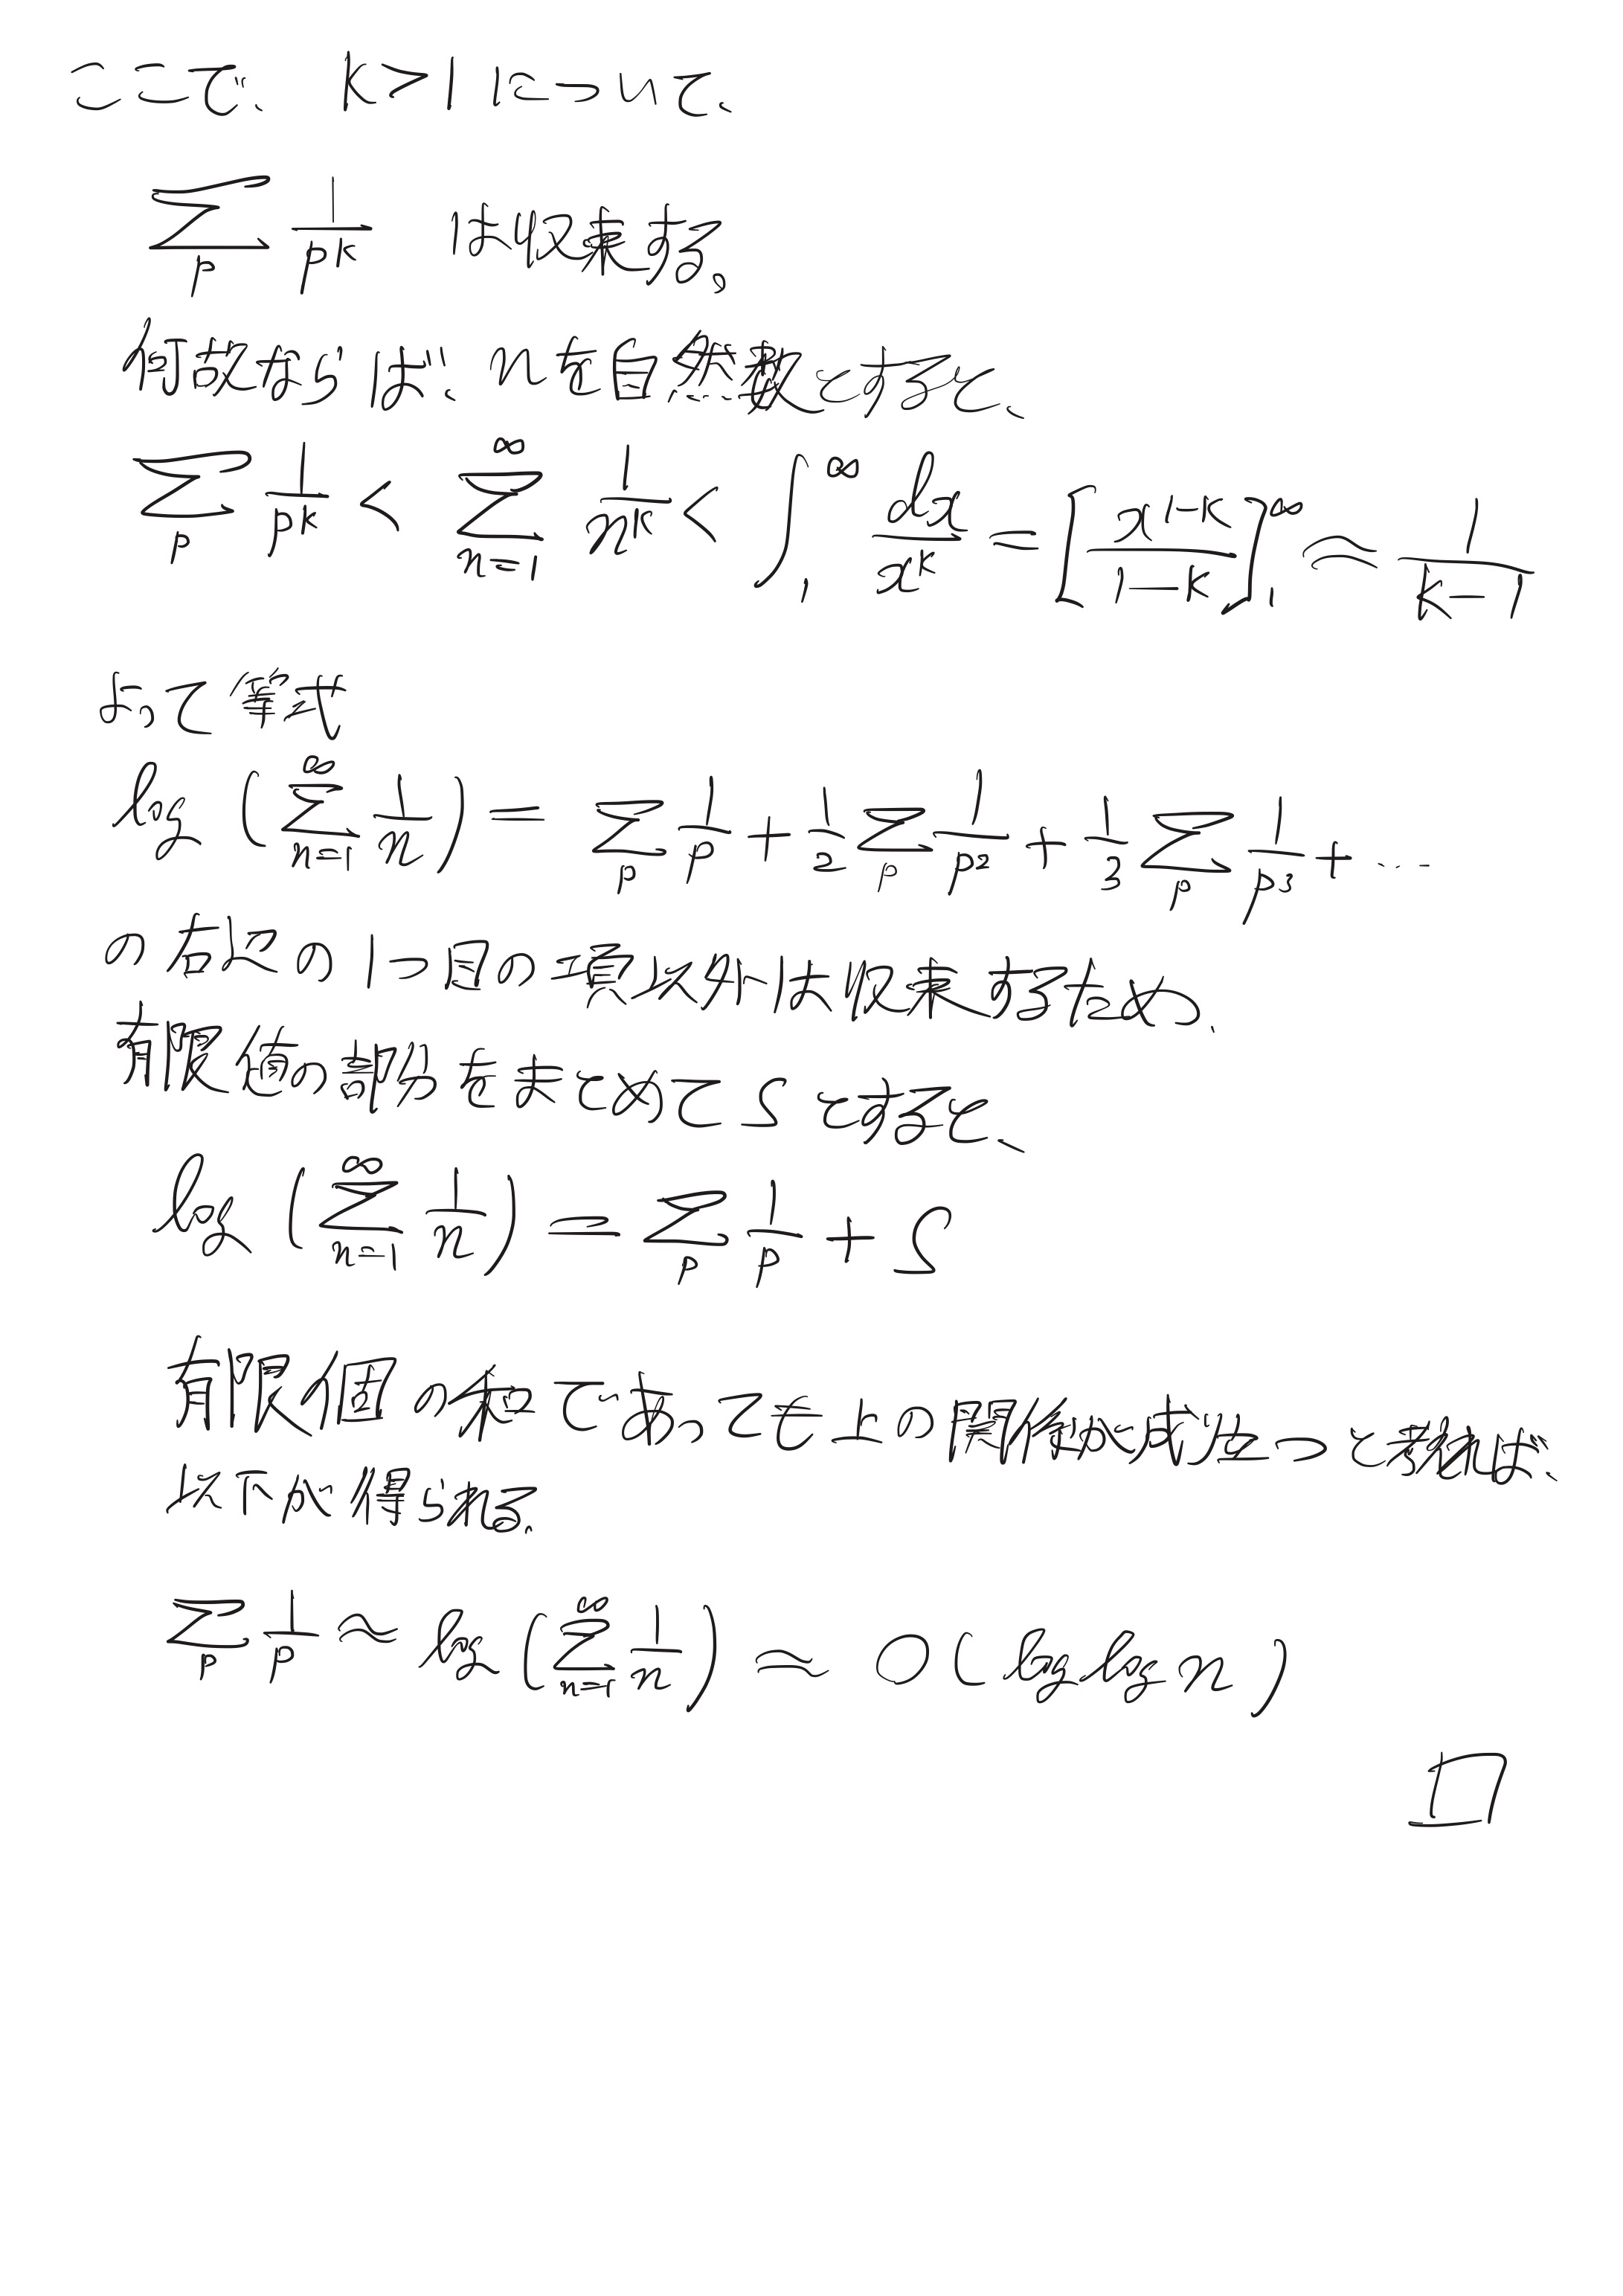 ここで、 k>1 について、
∑_p 1/p^k は収束する。
何故ならば、nを自然数とすると、
∑_p 1/p^k < ∑_{n=1}^∞ 1/n^k < ∫_1^∞ dx/x^k = [x^{1-k}/(1-k)]_1^∞ ≈ 1/(k-1)
よって等式
log (∑_{n=1}^∞ 1/n) = ∑_p 1/p + 1/2 ∑_p 1/p^2 + 1/3 ∑_p 1/p^3 + …
の右辺の1つ目の項以外は収束するため、
有限値の部分をまとめてSとすると、
log (∑_{n=1}^∞ 1/n) = ∑_p 1/p + S
有限個の和であっても上の関係が成立つと考えれば、
以下が得られる.
∑_p 1/p ≈ log (∑_{n=1}^∞ 1/n) ≈ O(log log n)
□